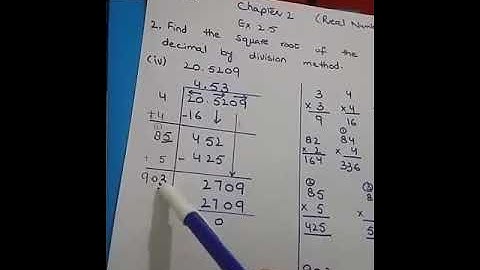 Chapter 2 (Real Num
Ex 2.5
2. Find the square root of the
decimal by division method.
(iv) 20.5209
4.53
4 20.5209
+4 -16
85 452
+5 -425
903 2709
2709
0
3 4
×3 ×4
9 16
82 84
×2 ×4
164 336
85
×5
425